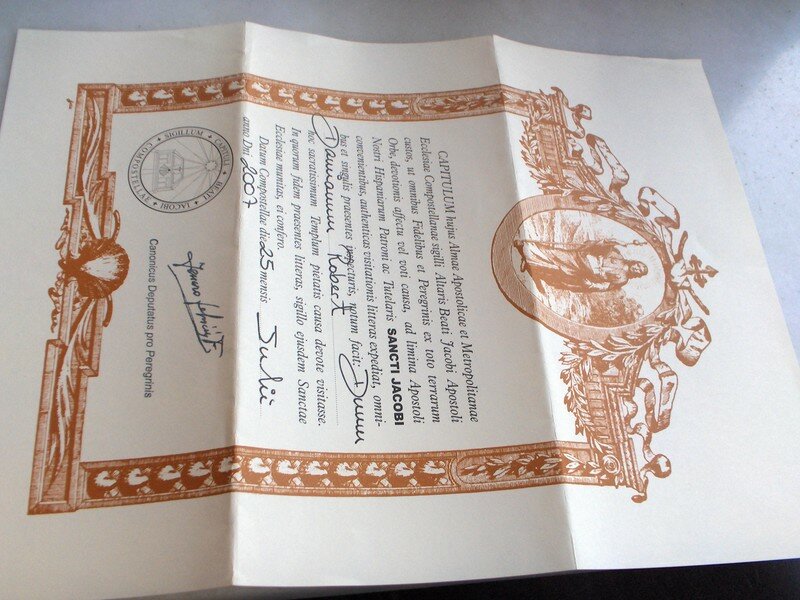 CAPITULUM hujus Almae Apostolicae et Metropolitanae
Ecclesiae Compostellanae sigilli Altaris Beati Jacobi Apostoli
custos, ut omnibus Fidelibus et Peregrinis ex toto terrarum
Orbe, devotionis affectu vel voti causa, ad limina Apostoli
Nostri Hispaniarum Patroni ac Tutelaris SANCTI JACOBI
convenientibus, authenticas visitationis literas expediat, omni-
bus et singulis praesentes inspecturis, notum facit: Dnum
Robert
hoc sacratissimum Templum pietatis causa devote visitasse.
In quorum fidem praesentes literas, sigillo ejusdem Sanctae
Ecclesiae munitas, ei confero.
Datum Compostellae die 25 mensis Julii
anno Dni 2007
Canonicus Deputatus pro Peregrinis
SIGILLUM BEATI JACOBI COMPOSTELLAE